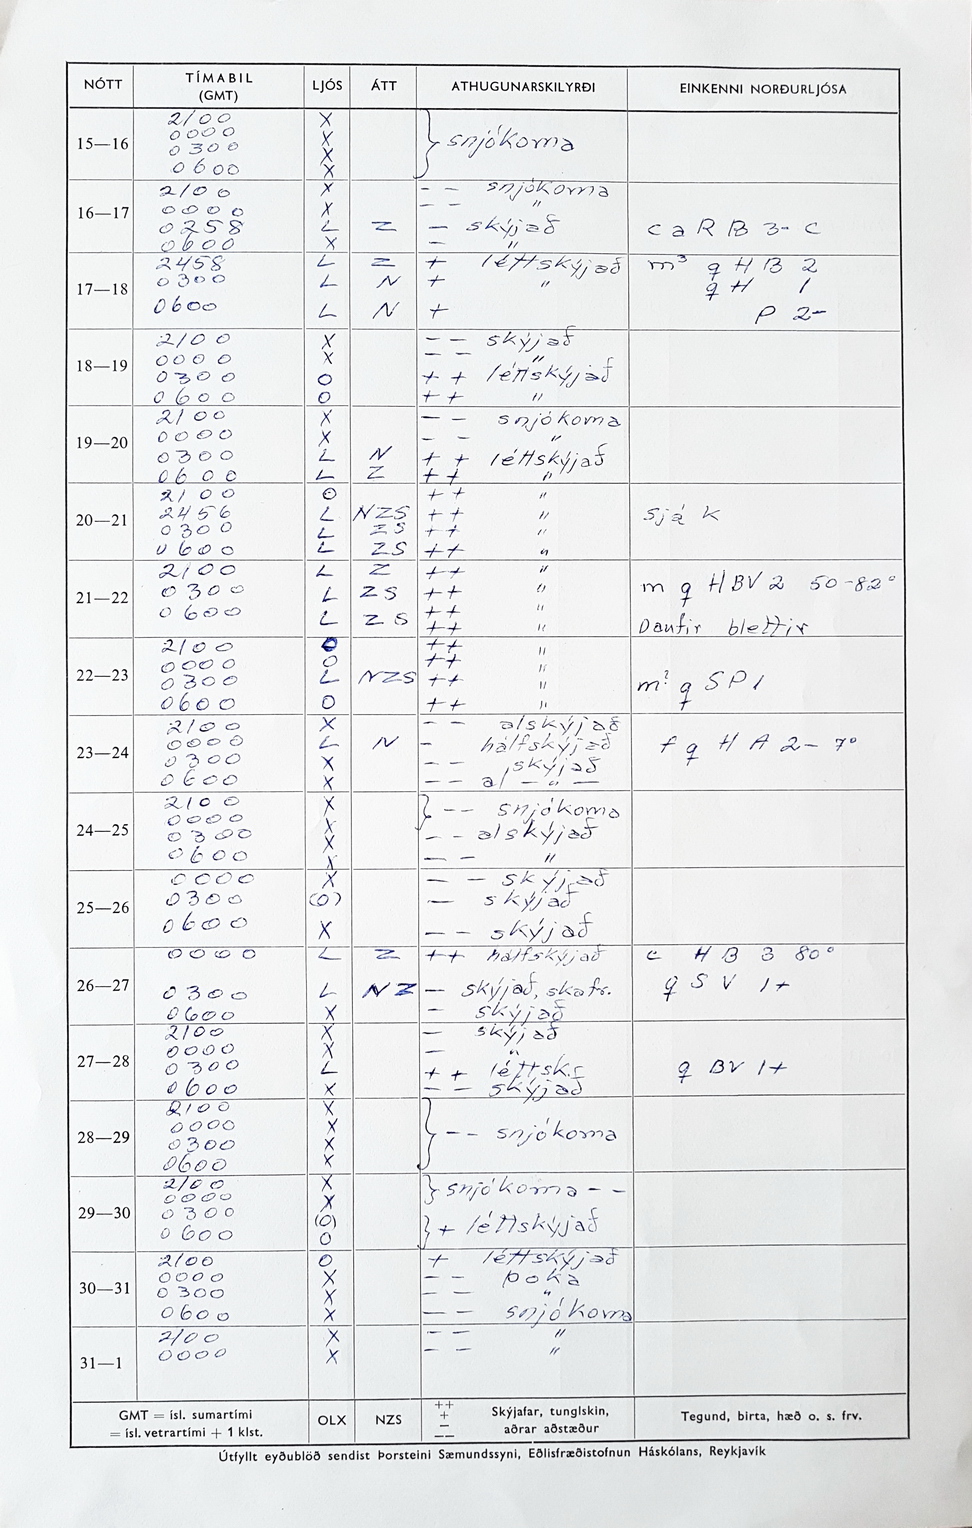 NÓTT TÍMABIL (GMT) LJÓS ÁTT ATHUGUNARSKILYRÐI EINKENNI NORÐURLJÓSA
15—16
2100 X
0000 X } snjókoma
0300 X
0600 X
16—17
2100 X -- snjókoma
0000 X -- "
0258 L Z - skýjað c a R B 3- C
0600 X - "
17—18
2458 L Z + léttskýjað m³ q H B 2
0300 L N + " q H 1
0600 L N + P 2-
18—19
2100 X -- skýjað
0000 X -- "
0300 O ++ léttskýjað
0600 O ++ "
19—20
2100 X -- snjókoma
0000 X -- "
0300 L N ++ léttskýjað
0600 L Z ++ "
20—21
2100 O ++ "
2456 L NZS ++ " sjá k
0300 L ZS ++ "
0600 L ZS ++ "
21—22
2100 L Z ++ "
0300 L ZS ++ " m q HBV2 50-82°
0600 L ZS ++
++ " Daufir blettir
22—23
2100 O ++ "
0000 O ++ "
0300 L NZS ++ " m² q SP1
0600 O ++ "
23—24
2100 X -- alskýjað
0000 L N - hálfskýjað f q H A 2- 7°
0300 X -- skýjað
0600 X -- al — " —
24—25
2100 X } -- snjókoma
0000 X
0300 X -- alskýjað
0600 X -- "
25—26
0000 X -- skýjað
0300 (O) - skýjað
0600 X -- skýjað
26—27
0000 L Z ++ hálfskýjað c H B 3 80°
0300 L NZ - skýjað, skafr. q S V 1+
0600 X - skýjað
27—28
2100 X - skýjað
0000 X - "
0300 L ++ léttsk. q BV 1+
0600 X -- skýjað
28—29
2100 X
0000 X } -- snjókoma
0300 X
0600 X
29—30
2100 X } snjókoma --
0000 X
0300 (O) } + léttskýjað
0600 O
30—31
2100 O + léttskýjað
0000 X -- þoka
0300 X -- "
0600 X -- snjókoma
31—1
2100 X -- "
0000 X -- "
GMT = ísl. sumartími
= ísl. vetrartími + 1 klst.
OLX NZS
++
+
—
— —
Skýjafar, tunglskin,
aðrar aðstæður
Tegund, birta, hæð o. s. frv.
Útfyllt eyðublöð sendist Þorsteini Sæmundssyni, Eðlisfræðistofnun Háskólans, Reykjavík